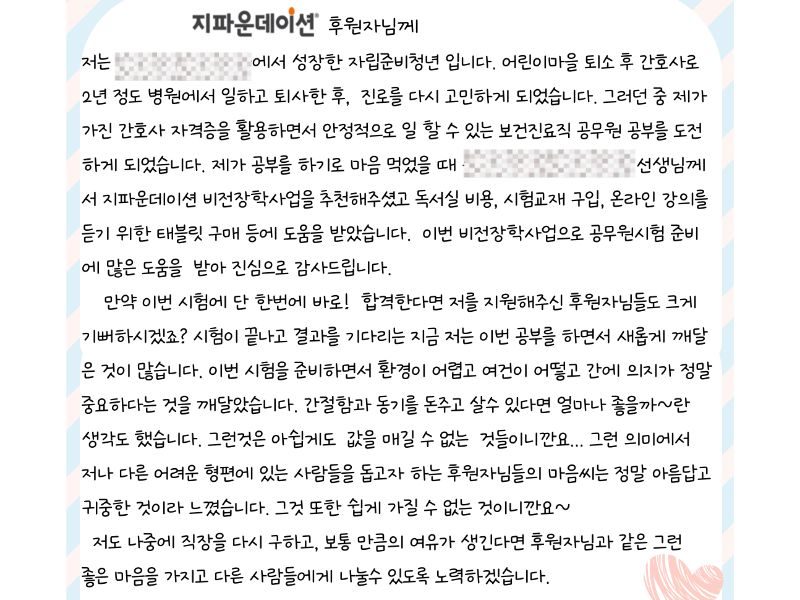 지파운데이션 후원자님께
저는 에서 성장한 자립준비청년 입니다. 어린이마을 퇴소 후 간호사로
2년 정도 병원에서 일하고 퇴사한 후, 진로를 다시 고민하게 되었습니다. 그러던 중 제가
가진 간호사 자격증을 활용하면서 안정적으로 일 할 수 있는 보건진료직 공무원 공부를 도전
하게 되었습니다. 제가 공부를 하기로 마음 먹었을 때 선생님께
서 지파운데이션 비전장학사업을 추천해주셨고 독서실 비용, 시험교재 구입, 온라인 강의를
듣기 위한 태블릿 구매 등에 도움을 받았습니다. 이번 비전장학사업으로 공무원시험 준비
에 많은 도움을 받아 진심으로 감사드립니다.
만약 이번 시험에 단 한번에 바로! 합격한다면 저를 지원해주신 후원자님들도 크게
기뻐하시겠죠? 시험이 끝나고 결과를 기다리는 지금 저는 이번 공부를 하면서 새롭게 깨달
은 것이 많습니다. 이번 시험을 준비하면서 환경이 어렵고 여건이 어떻고 간에 의지가 정말
중요하다는 것을 깨달았습니다. 간절함과 동기를 돈주고 살수 있다면 얼마나 좋을까~란
생각도 했습니다. 그런것은 아쉽게도 값을 매길 수 없는 것들이니깐요... 그런 의미에서
저나 다른 어려운 형편에 있는 사람들을 돕고자 하는 후원자님들의 마음씨는 정말 아름답고
귀중한 것이라 느꼈습니다. 그것 또한 쉽게 가질 수 없는 것이니깐요~
저도 나중에 직장을 다시 구하고, 보통 만큼의 여유가 생긴다면 후원자님과 같은 그런
좋은 마음을 가지고 다른 사람들에게 나눌수 있도록 노력하겠습니다.